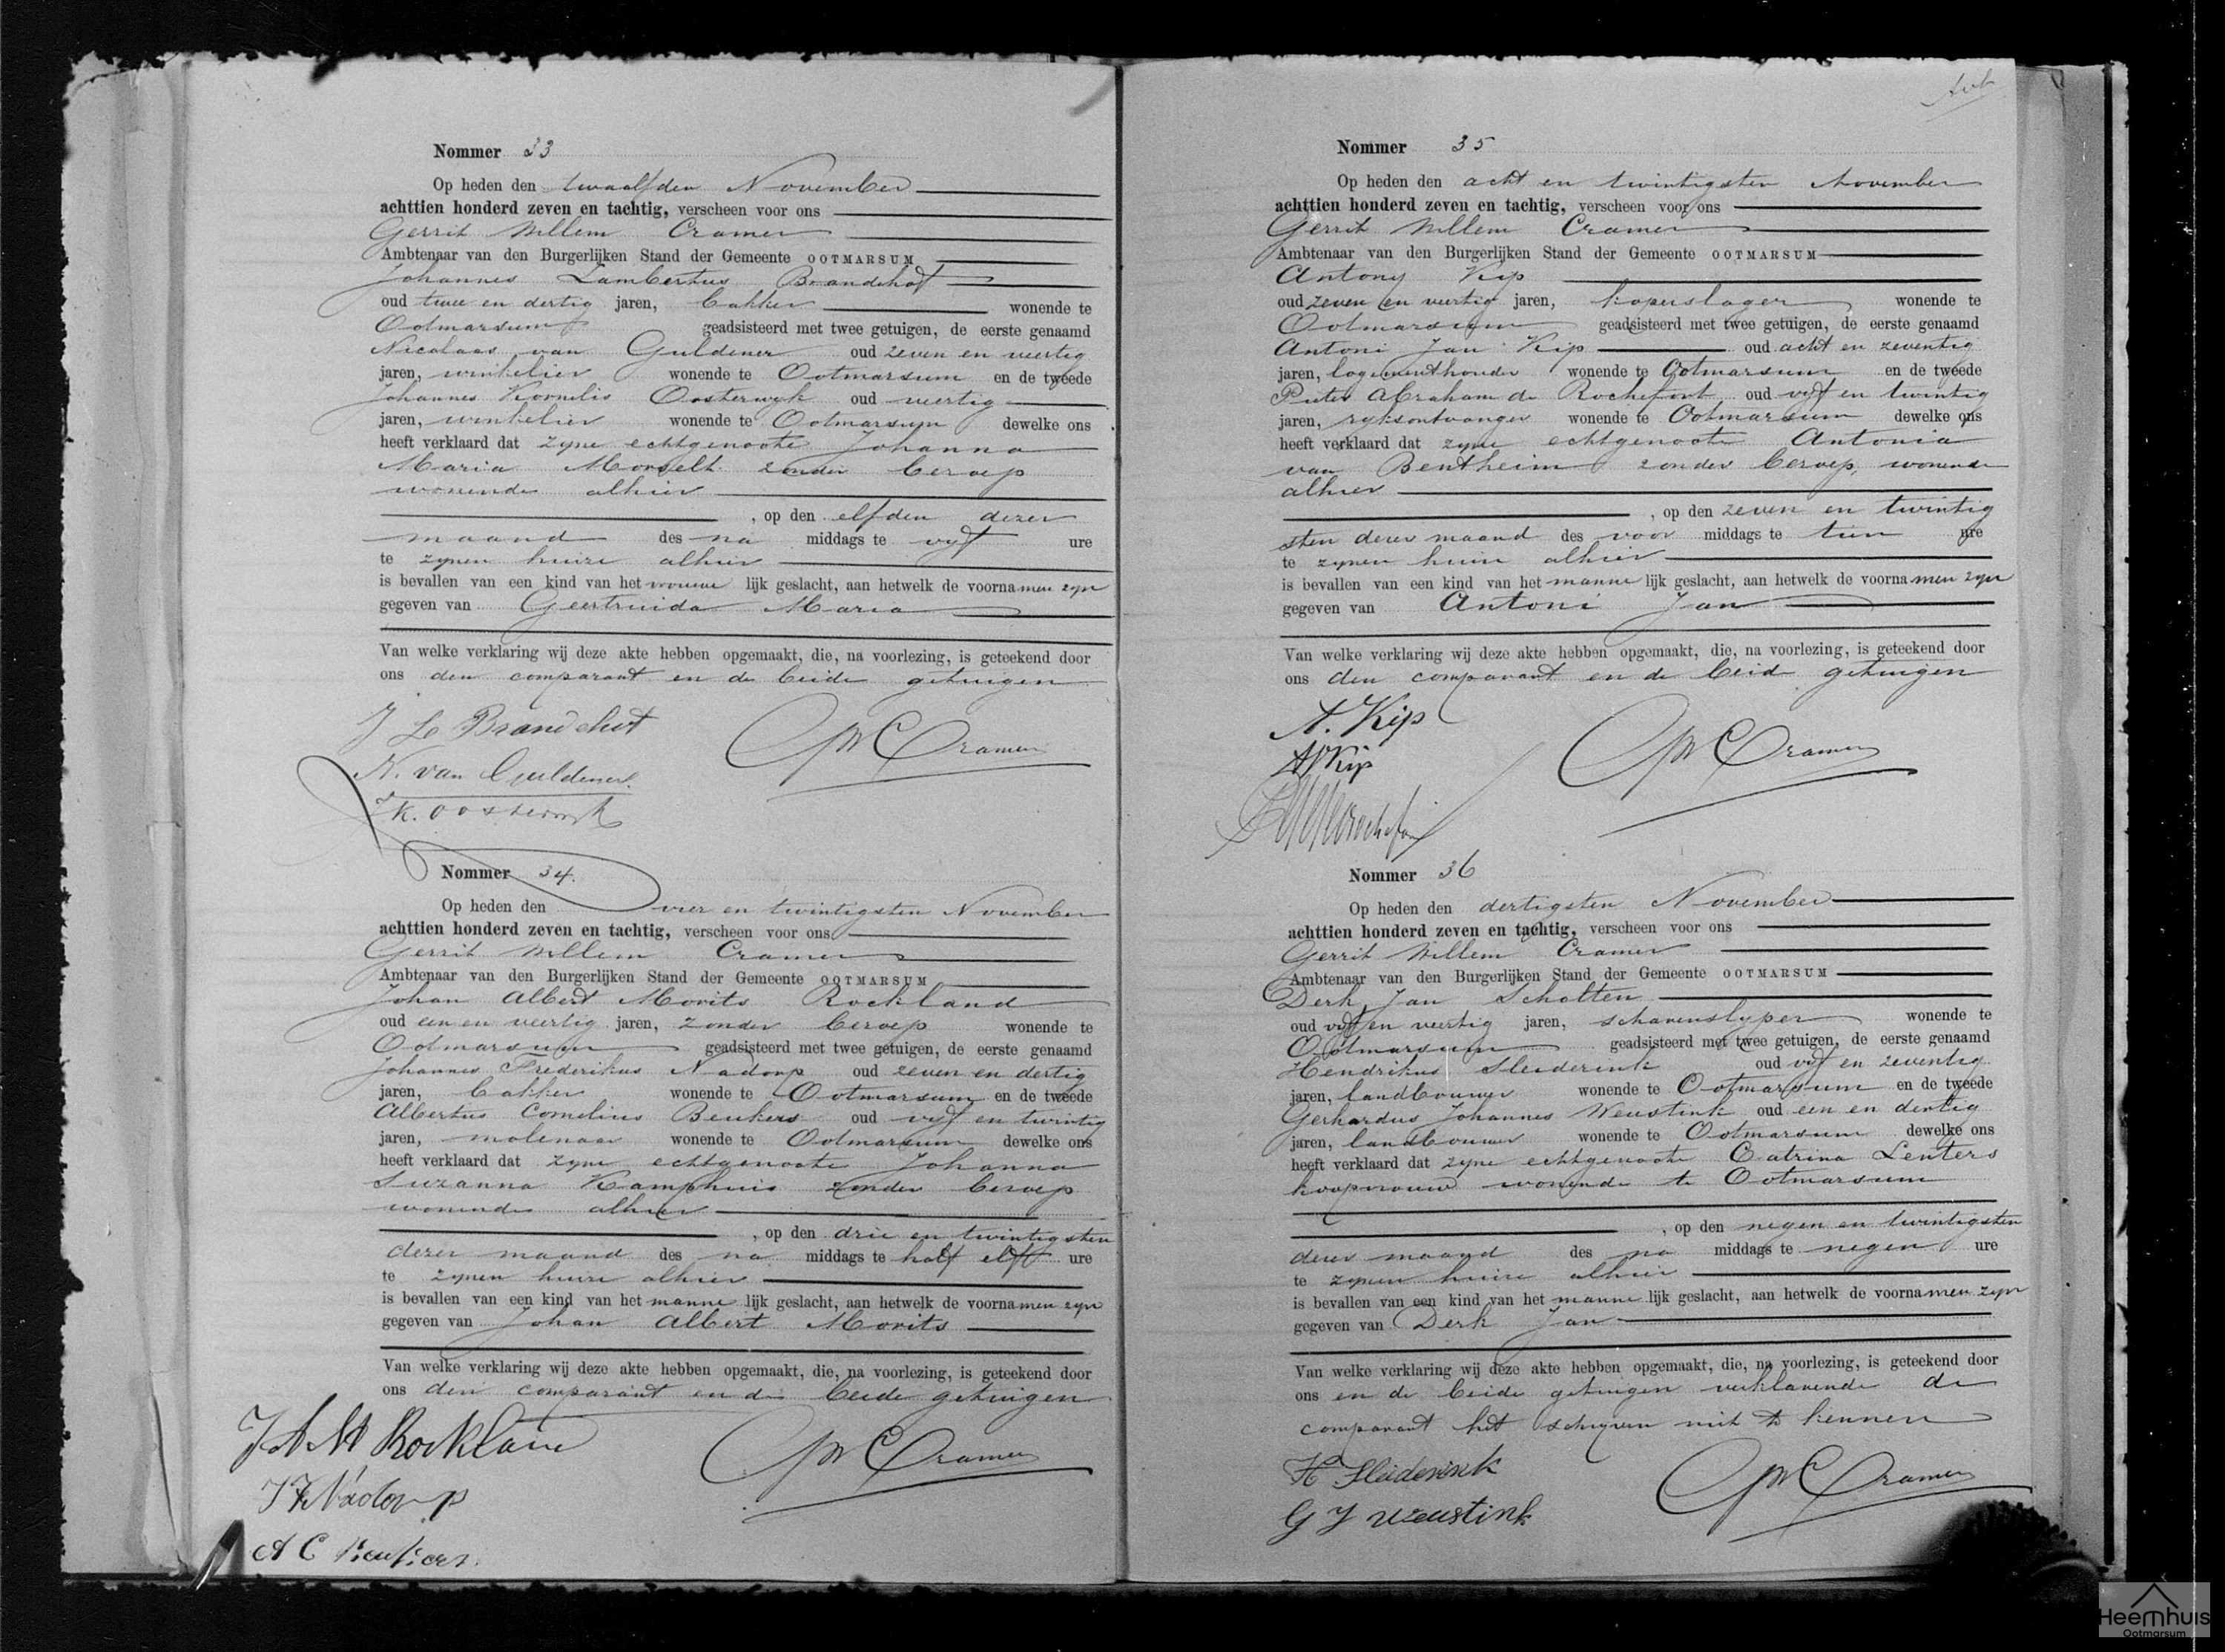 Nommer 33
Op heden den twaalfden November
achttien honderd zeven en tachtig, verscheen voor ons
Gerrit Willem Cramer
Ambtenaar van den Burgerlijken Stand der Gemeente OOTMARSUM
Johannes Lambertus Brandehof
oud twee en dertig jaren, bakker wonende te
Ootmarsum geadsisteerd met twee getuigen, de eerste genaamd
Nicolaas van Guldener oud zeven en veertig
jaren, winkelier wonende te Ootmarsum en de tweede
Johannes Kornelis Oosterwyk oud veertig
jaren, winkelier wonende te Ootmarsum dewelke ons
heeft verklaard dat zyne echtgenoote Johanna
Maria Morselt zonder beroep
wonende alhier
, op den elfden dezer
maand des na middags te vyf ure
te zynen huize alhier
is bevallen van een kind van het vrouwe lijk geslacht, aan hetwelk de voornamen zyn
gegeven van Geertruida Maria
Van welke verklaring wij deze akte hebben opgemaakt, die, na voorlezing, is geteekend door
ons den comparant en de beide getuigen
J L Brandehof
GW Cramer
N. van Guldener
J K. Oosterwyk
Nommer 34.
Op heden den vier en twintigsten November
achttien honderd zeven en tachtig, verscheen voor ons
Gerrit Willem Cramer
Ambtenaar van den Burgerlijken Stand der Gemeente OOTMARSUM
Johan Albert Morits Rockland
oud een en veertig jaren, zonder beroep wonende te
Ootmarsum geadsisteerd met twee getuigen, de eerste genaamd
Johannes Frederikus Nadorp oud zeven en dertig
jaren, bakker wonende te Ootmarsum en de tweede
Albertus Cornelius Beukers oud vyf en twintig
jaren, molenaar wonende te Ootmarsum dewelke ons
heeft verklaard dat zyne echtgenoote Johanna
Suzanna Kamphuis zonder beroep
wonende alhier
, op den drie en twintigsten
dezer maand des na middags te half elf ure
te zynen huize alhier
is bevallen van een kind van het manne lijk geslacht, aan hetwelk de voornamen zyn
gegeven van Johan Albert Morits
Van welke verklaring wij deze akte hebben opgemaakt, die, na voorlezing, is geteekend door
ons den comparant en de beide getuigen
J A M Rockland
GW Cramer
J F Nadorp
A C Beukers.
Nommer 35
Op heden den acht en twintigsten November
achttien honderd zeven en tachtig, verscheen voor ons
Gerrit Willem Cramer
Ambtenaar van den Burgerlijken Stand der Gemeente OOTMARSUM
Antony Kip
oud zeven en veertig jaren, koperslager wonende te
Ootmarsum geadsisteerd met twee getuigen, de eerste genaamd
Antoni Jan Kip oud acht en zeventig
jaren, logementhouder wonende te Ootmarsum en de tweede
Pieter Abraham de Rochefort oud vyf en twintig
jaren, ryksontvanger wonende te Ootmarsum dewelke ons
heeft verklaard dat zyne echtgenoote Antonia
van Bentheim zonder beroep, wonende
alhier
, op den zeven en twintig
sten dezer maand des voor middags te tien ure
te zynen huize alhier
is bevallen van een kind van het manne lijk geslacht, aan hetwelk de voornamen zyn
gegeven van Antoni Jan
Van welke verklaring wij deze akte hebben opgemaakt, die, na voorlezing, is geteekend door
ons den comparant en de beide getuigen
A. Kip
GW Cramer
AJ Kip
Nommer 36
Op heden den dertigsten November
achttien honderd zeven en tachtig, verscheen voor ons
Gerrit Willem Cramer
Ambtenaar van den Burgerlijken Stand der Gemeente OOTMARSUM
Derk Jan Scholten
oud vyf en veertig jaren, scharenslyper wonende te
Ootmarsum geadsisteerd met twee getuigen, de eerste genaamd
Hendrikus Sleiderink oud vyf en zeventig
jaren, landbouwer wonende te Ootmarsum en de tweede
Gerhardus Johannes Weustink oud een en dertig
jaren, landbouwer wonende te Ootmarsum dewelke ons
heeft verklaard dat zyne echtgenoote Catrina Lenters
koopvrouw wonende te Ootmarsum
, op den negen en twintigsten
dezer maand des na middags te negen ure
te zynen huize alhier
is bevallen van een kind van het manne lijk geslacht, aan hetwelk de voornamen zyn
gegeven van Derk Jan
Van welke verklaring wij deze akte hebben opgemaakt, die, na voorlezing, is geteekend door
ons en de beide getuigen verklarende de
comparant het schryven niet te kennen
H Sleiderink
GW Cramer
G J Weustink
Heemhuis
Ootmarsum